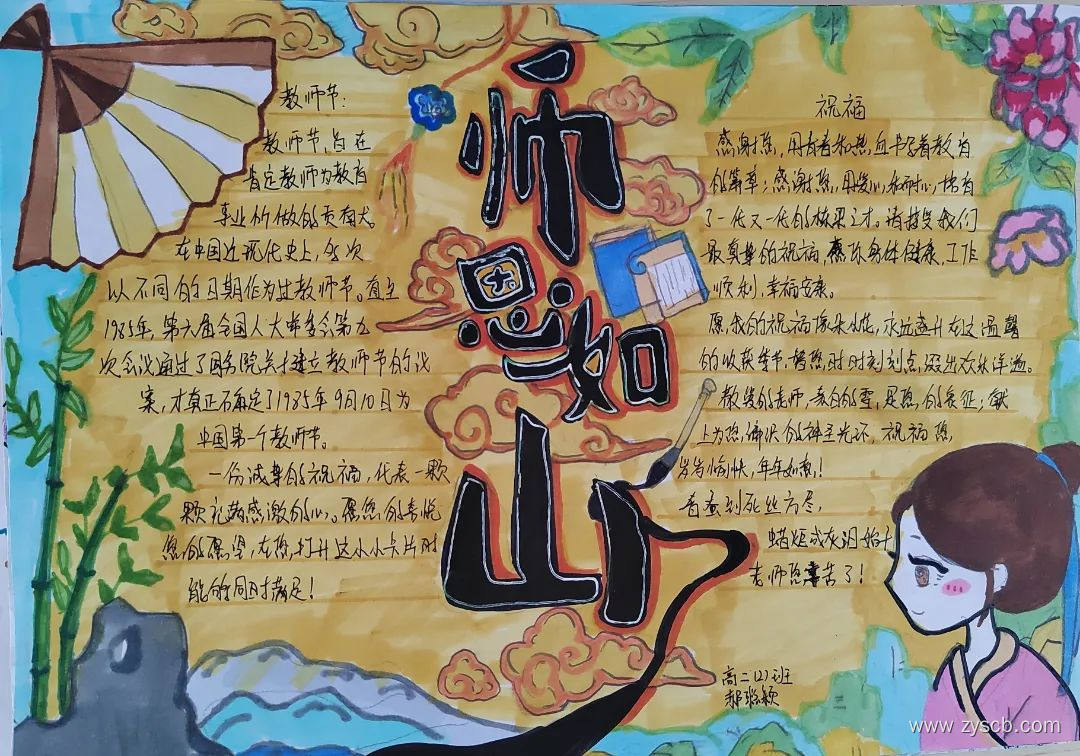 师恩如山
教师节:
教师节,旨在
肯定教师为教育
事业所做的贡献。
在中国近现代史上,多次
以不同的日期作为过教师节。直至
1985年,第六届全国人大常委会第九
次会议通过了国务院关于建立教师节的议
案,才真正确定了1985年9月10日为
中国第一个教师节。
一份诚挚的祝福,代表一颗
颗充满感激的心。愿您的喜悦
您的愿望,在您,打开这小小卡片时
能够同时满足!
祝福
感谢您,用青春和热血书写着教育
的篇章;感谢您,用爱心和耐心,培育
了一代又一代的栋梁之才。请接受我们
最真挚的祝福,愿你身体健康,工作
顺利,幸福安康。
愿,我的祝福像朵朵花,永远盛开在这温馨
的收获季节,替您时时刻刻点缀出欢欣洋溢。
敬爱的老师,亲白的雪,是您的象征;献
上为您佩织的神圣光环,祝福您,
岁岁愉快,年年如意!
春蚕到死丝方尽,
蜡炬成灰泪始干
老师您辛苦了!
高二(2)班
www.zyscb.com